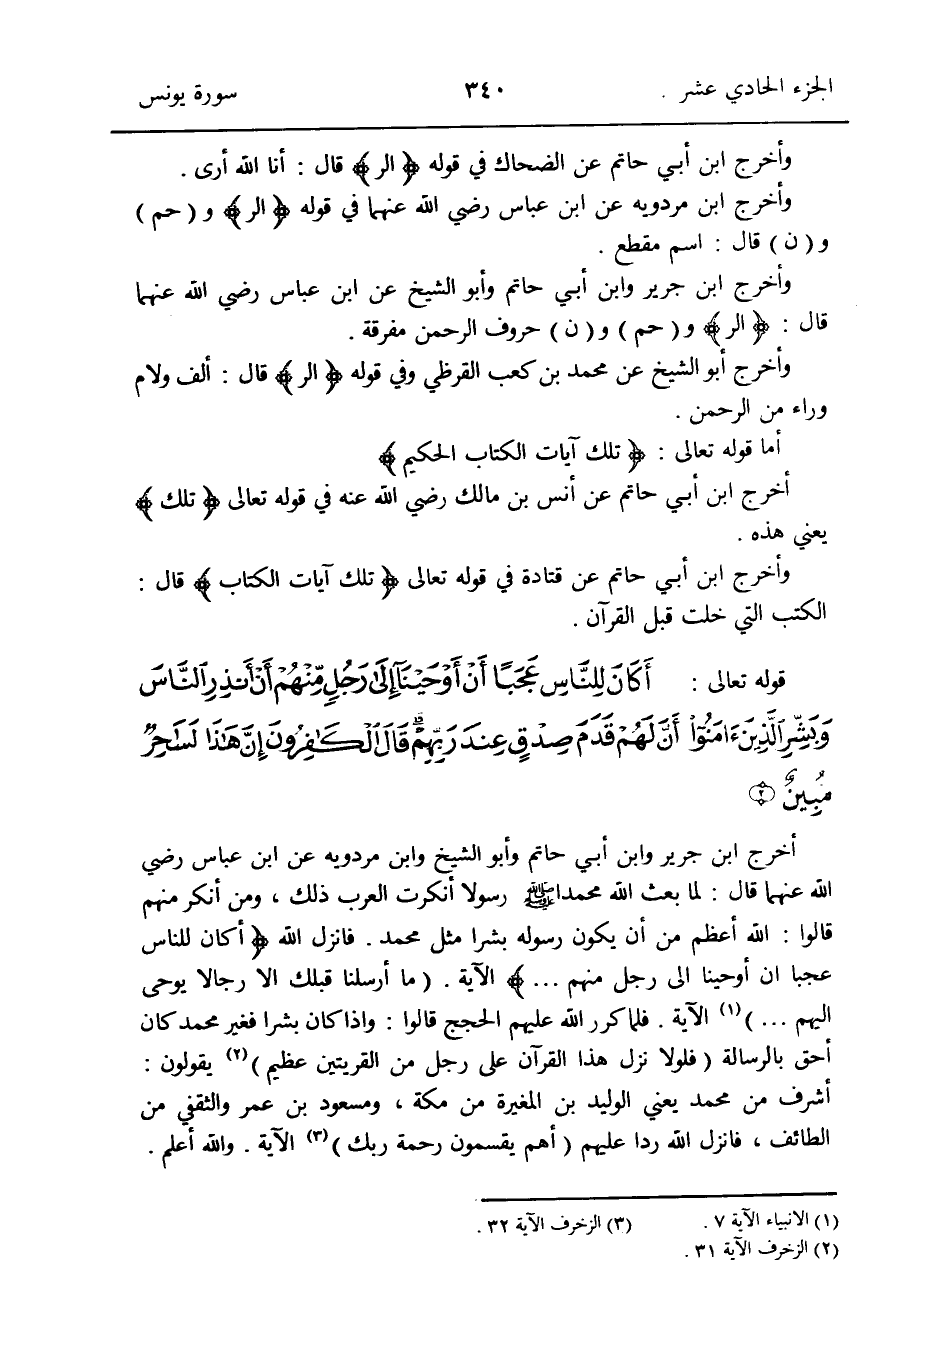 الجزء الحادي عشر . ٣٤٠ سورة يونس
وأخرج ابن أبي حاتم عن الضحاك في قوله ﴿ الر ﴾ قال : أنا الله أرى .
وأخرج ابن مردويه عن ابن عباس رضي الله عنهما في قوله ﴿ الر ﴾ و ( حم )
و ( ن ) قال : اسم مقطع .
وأخرج ابن جرير وابن أبي حاتم وأبو الشيخ عن ابن عباس رضي الله عنهما
قال : ﴿ الر ﴾ و ( حم ) و ( ن ) حروف الرحمن مفرقة .
وأخرج أبو الشيخ عن محمد بن كعب القرظي وفي قوله ﴿ الر ﴾ قال : ألف ولام
وراء من الرحمن .
أما قوله تعالى : ﴿ تلك آيات الكتاب الحكيم ﴾
أخرج ابن أبي حاتم عن أنس بن مالك رضي الله عنه في قوله تعالى ﴿ تلك ﴾
يعني هذه .
وأخرج ابن أبي حاتم عن قتادة في قوله تعالى ﴿ تلك آيات الكتاب ﴾ قال :
الكتب التي خلت قبل القرآن .
قوله تعالى : أَكَانَ لِلنَّاسِ عَجَبًا أَنْ أَوْحَيْنَآ إِلَىٰ رَجُلٍ مِّنْهُمْ أَنْ أَنذِرِ ٱلنَّاسَ
وَبَشِّرِ ٱلَّذِينَ ءَامَنُوٓا۟ أَنَّ لَهُمْ قَدَمَ صِدْقٍ عِندَ رَبِّهِمْ ۗ قَالَ ٱلْكَٰفِرُونَ إِنَّ هَٰذَا لَسَٰحِرٌ
مُّبِينٌ ۝٢
أخرج ابن جرير وابن أبي حاتم وأبو الشيخ وابن مردويه عن ابن عباس رضي
الله عنهما قال : لما بعث الله محمدا ﷺ رسولا أنكرت العرب ذلك ، ومن أنكر منهم
قالوا : الله أعظم من أن يكون رسوله بشرا مثل محمد . فانزل الله ﴿ أكان للناس
عجبا ان أوحينا الى رجل منهم ... ﴾ الآية . ( ما أرسلنا قبلك الا رجالا يوحى
اليهم ... )(١) الآية . فلما كرر الله عليهم الحجج قالوا : واذا كان بشرا فغير محمد كان
أحق بالرسالة ( فلولا نزل هذا القرآن على رجل من القريتين عظيم )(٢) يقولون :
أشرف من محمد يعني الوليد بن المغيرة من مكة ، ومسعود بن عمر والثقفي من
الطائف ، فانزل الله ردا عليهم ( أهم يقسمون رحمة ربك )(٣) الآية . والله أعلم .
(١) الانبياء الآية ٧ . (٣) الزخرف الآية ٣٢ .
(٢) الزخرف الآية ٣١ .